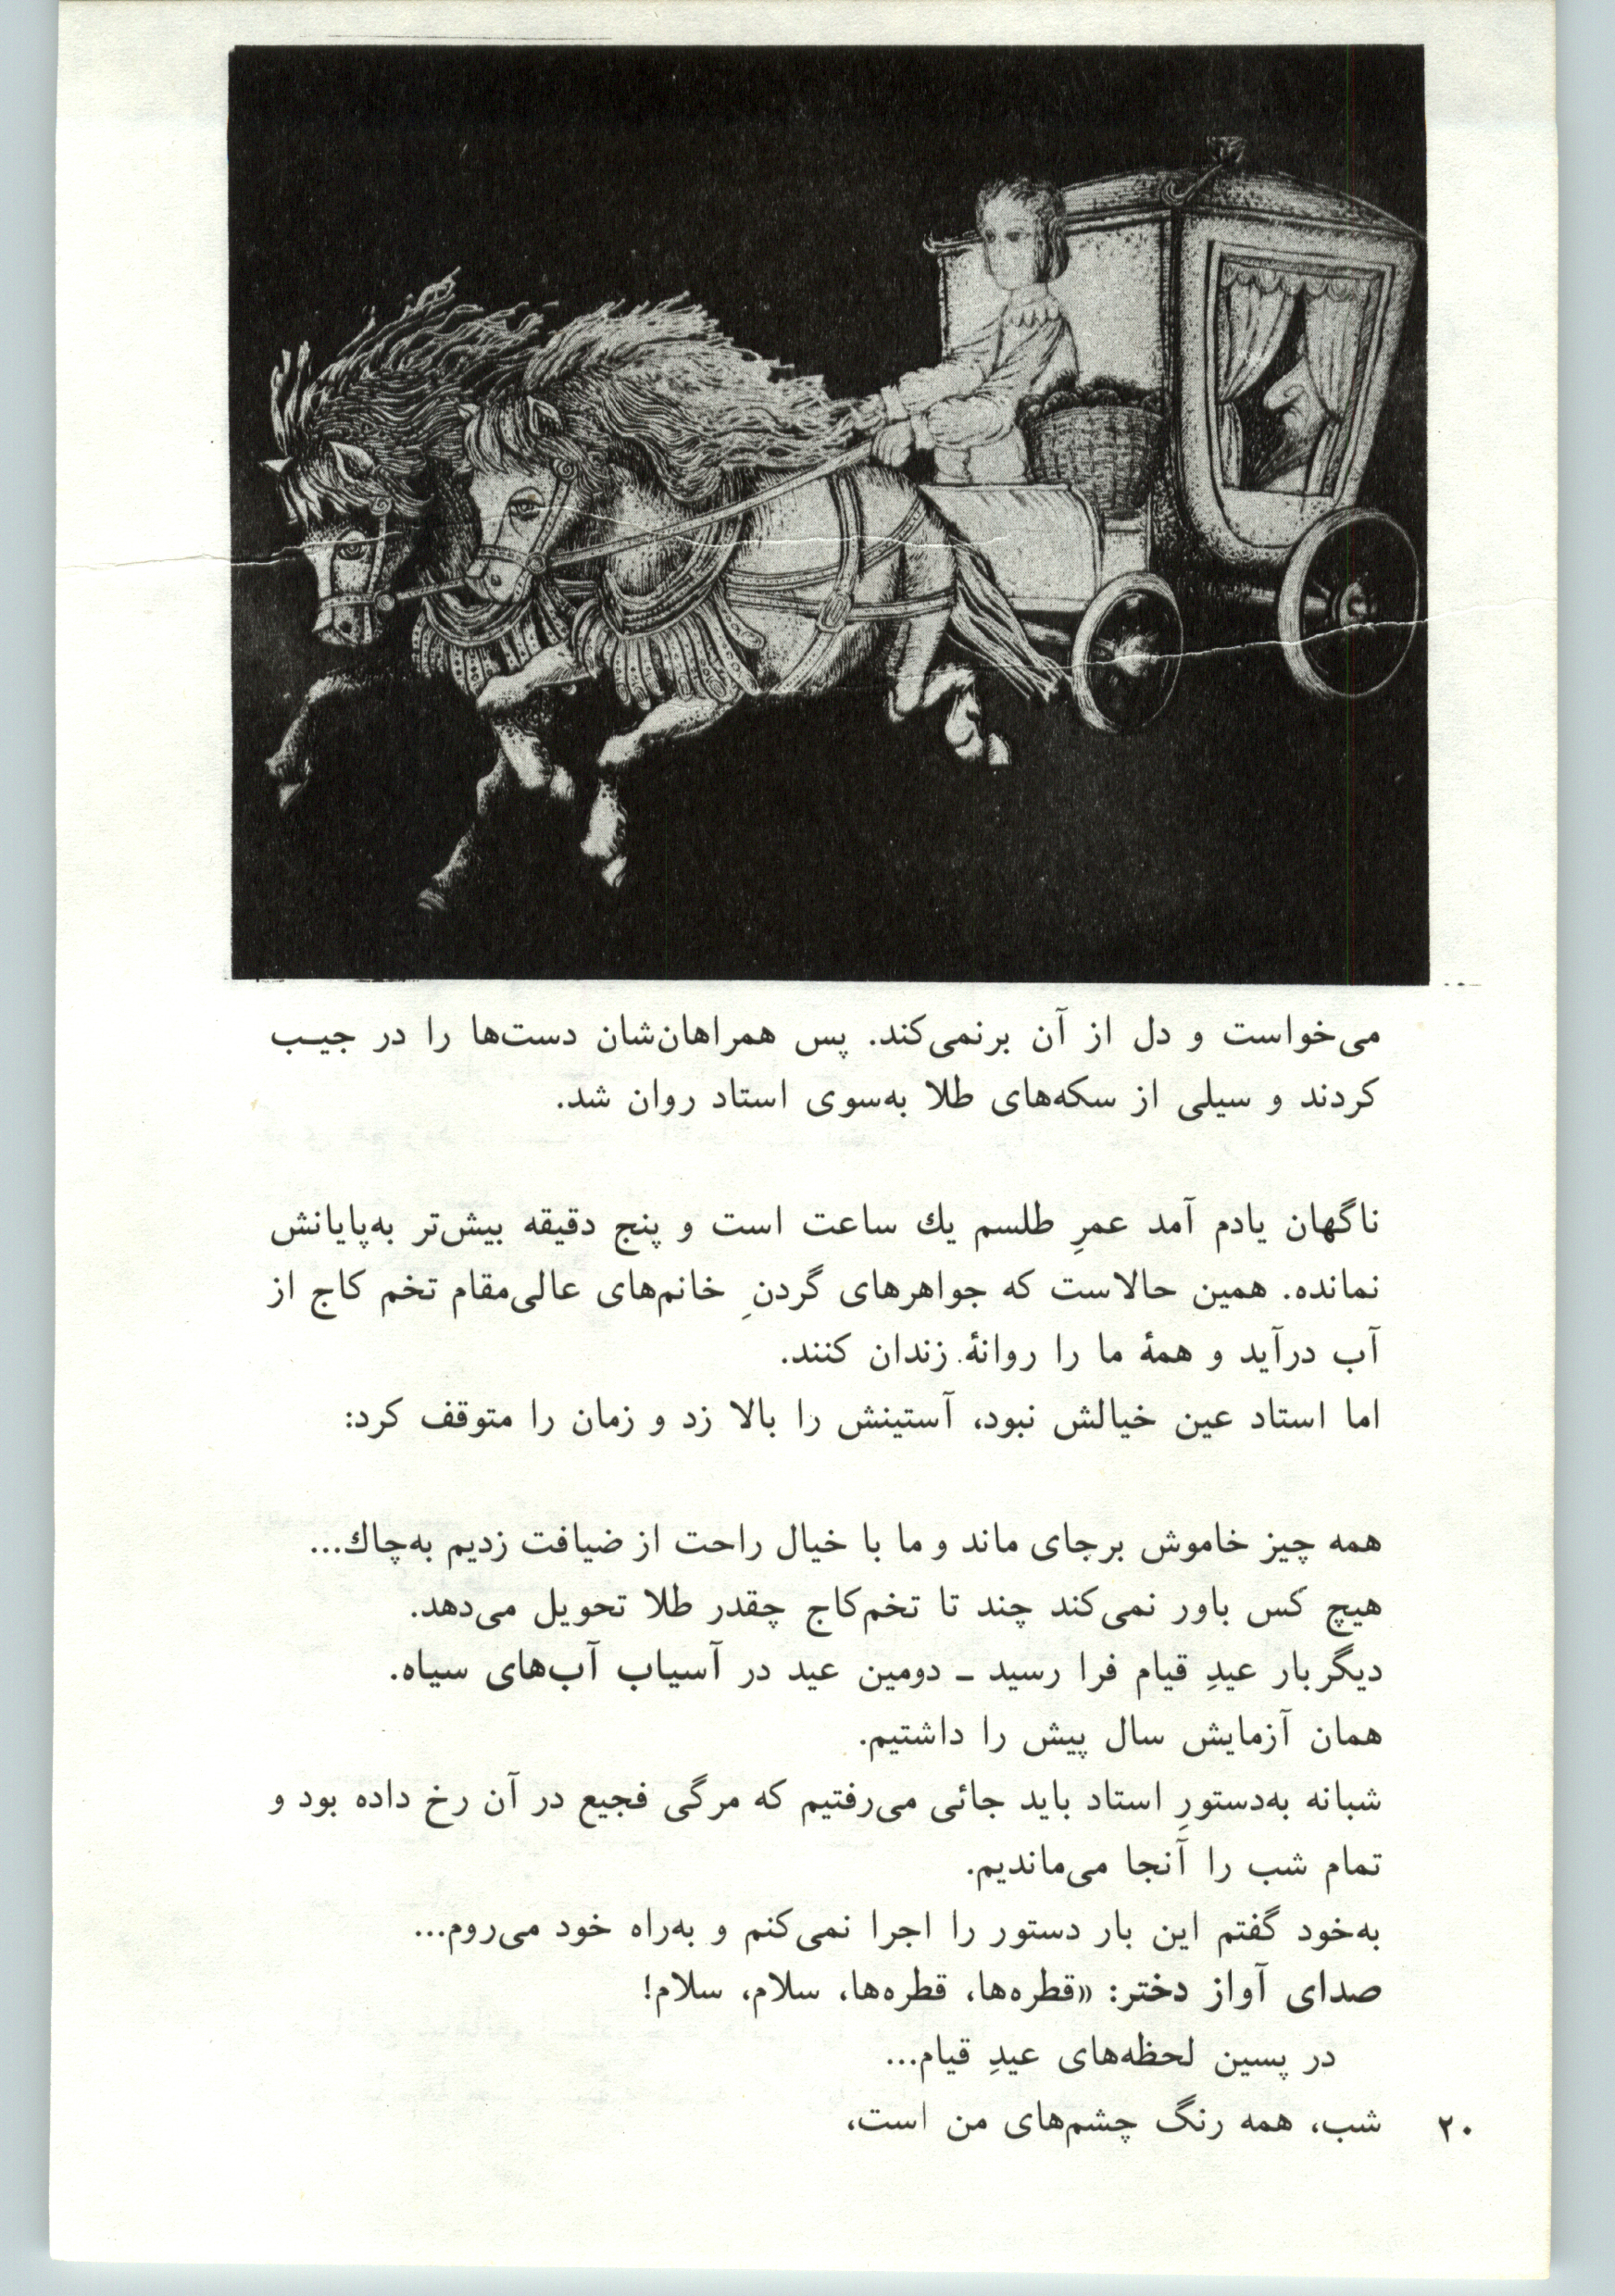 می‌خواست و دل از آن برنمی‌کند. پس همراهان‌شان دست‌ها را در جیـب
کردند و سیلی از سکه‌های طلا به‌سوی استاد روان شد.
ناگهان یادم آمد عمرِ طلسم یك ساعت است و پنج دقیقه بیش‌تر به‌پایانش
نمانده. همین حالاست که جواهرهای گردنِ خانم‌های عالی‌مقام تخم کاج از
آب درآید و همهٔ ما را روانهٔ زندان کنند.
اما استاد عین خیالش نبود، آستینش را بالا زد و زمان را متوقف کرد:
همه چیز خاموش برجای ماند و ما با خیال راحت از ضیافت زدیم به‌چاك...
هیچ کس باور نمی‌کند چند تا تخم‌کاج چقدر طلا تحویل می‌دهد.
دیگربار عیدِ قیام فرا رسید ـ دومین عید در آسیاب آب‌های سیاه.
همان آزمایش سال پیش را داشتیم.
شبانه به‌دستورِ استاد باید جائی می‌رفتیم که مرگی فجیع در آن رخ داده بود و
تمام شب را آنجا می‌ماندیم.
به‌خود گفتم این بار دستور را اجرا نمی‌کنم و به‌راه خود می‌روم...
صدای آواز دختر: «قطره‌ها، قطره‌ها، سلام، سلام!
در پسین لحظه‌های عیدِ قیام...
شب، همه رنگ چشم‌های من است،
۲۰